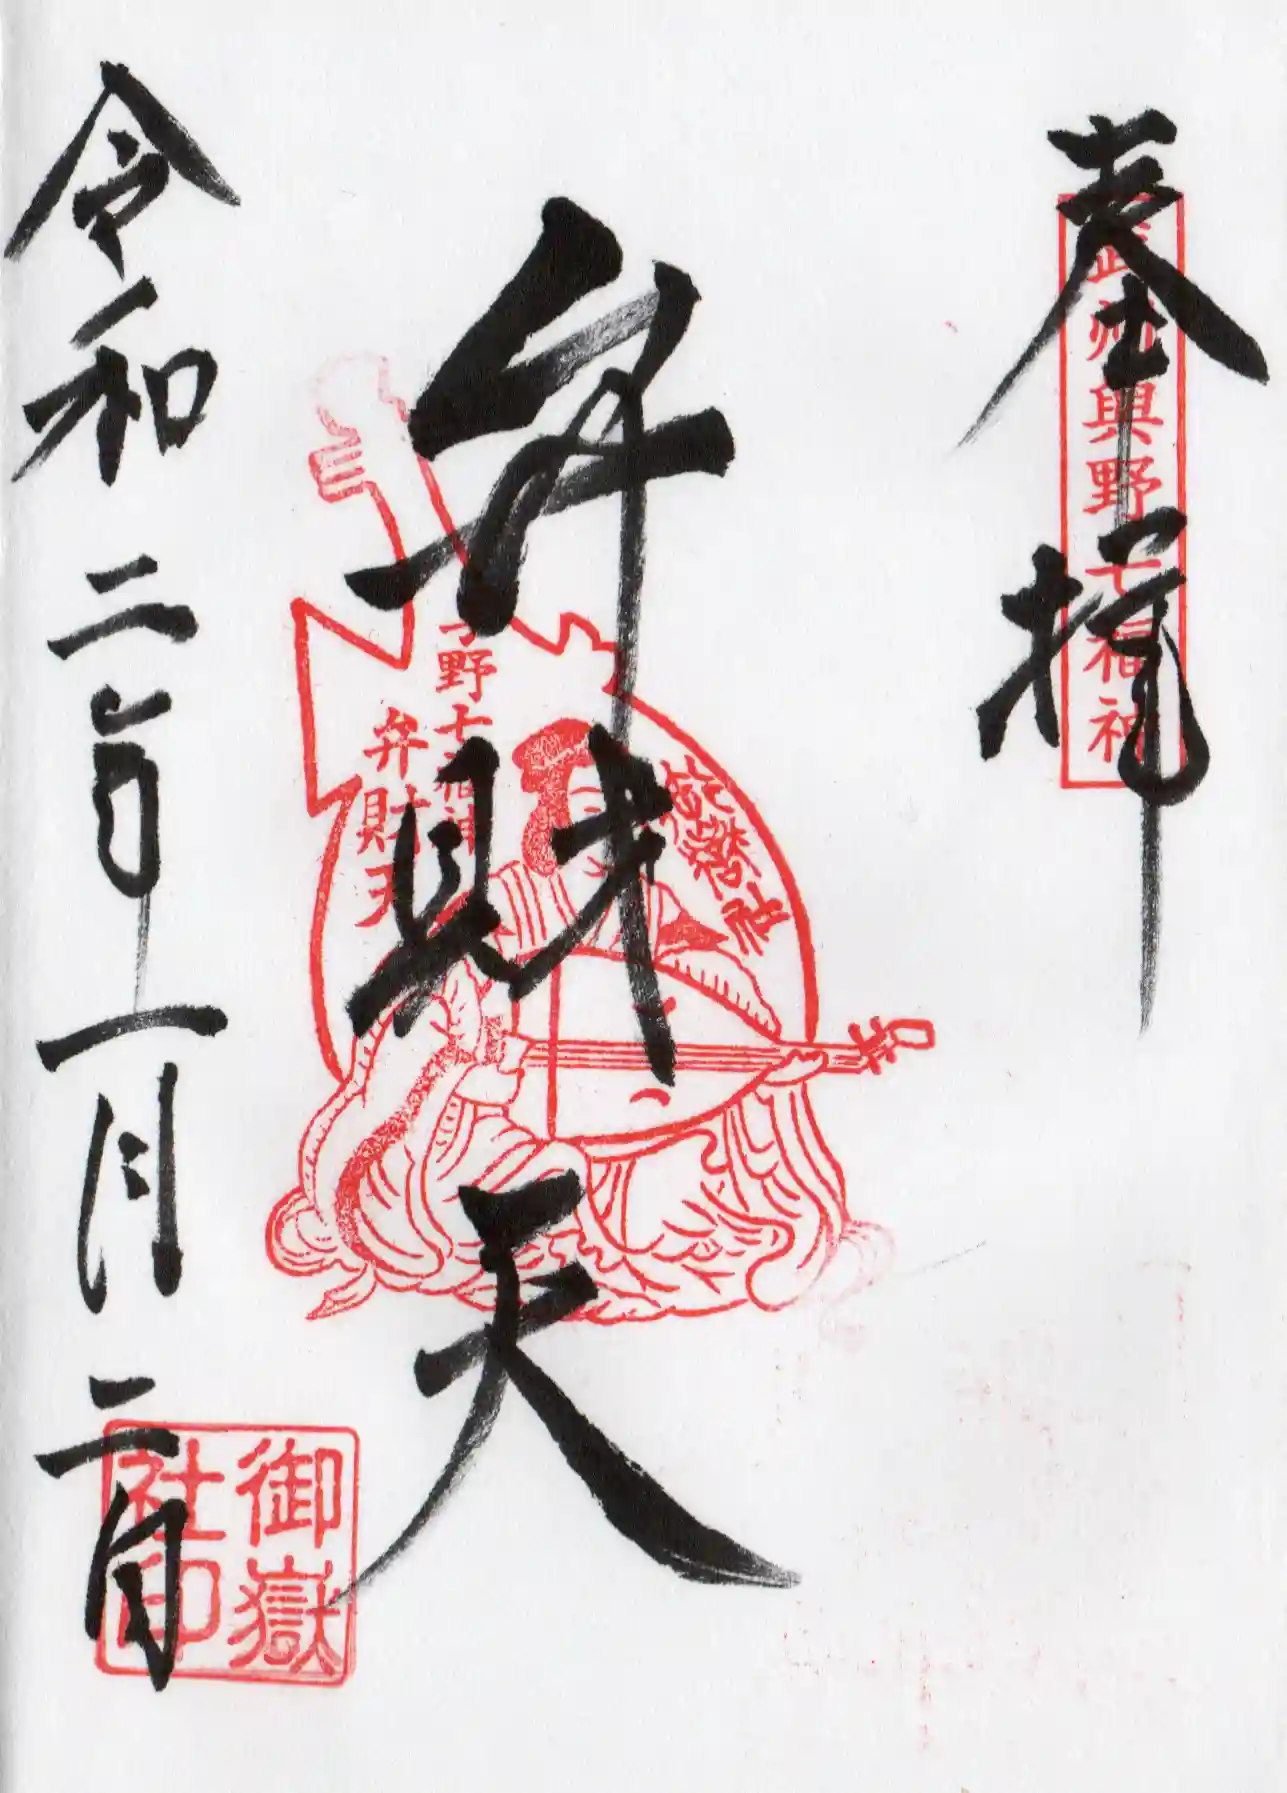 奉拝
武州與野七福神
弁財天
与野七福神
弁財天
令和二年一月二日
御嶽
社印